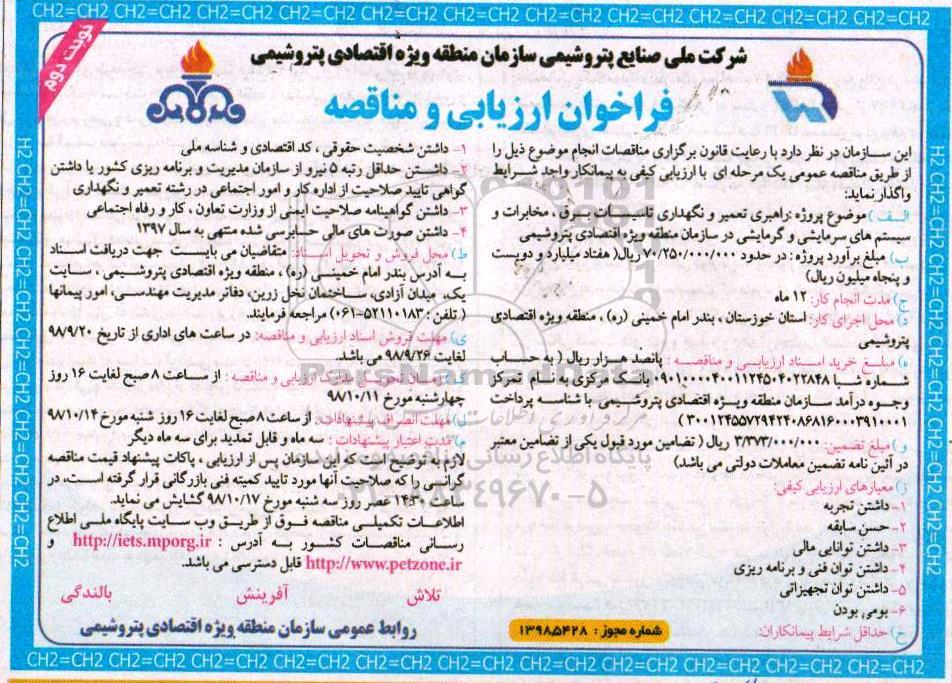 CH2=CH2 CH2=CH2 CH2=CH2 CH2=CH2 CH2=CH2 CH2=CH2 CH2=CH2 CH2=CH2 CH2=CH2 CH2=CH2 CH2=CH2 CH2=CH2
نوبت دوم
شرکت ملی صنایع پتروشیمی سازمان منطقه ویژه اقتصادی پتروشیمی
فراخوان ارزیابی و مناقصه
این سازمان در نظر دارد با رعایت قانون برگزاری مناقصات انجام موضوع ذیل را
از طریق مناقصه عمومی یک مرحله ای با ارزیابی کیفی به پیمانکار واجد شرایط
واگذار نماید:
الف) موضوع پروژه :راهبری تعمیر و نگهداری تاسیسات برق ، مخابرات و
سیستم های سرمایشی و گرمایشی در سازمان منطقه ویژه اقتصادی پتروشیمی
ب) مبلغ برآورد پروژه : در حدود ۷۰/۲۵۰/۰۰۰/۰۰۰ ریال( هفتاد میلیارد و دویست
و پنجاه میلیون ریال)
ج) مدت انجام کار: ۱۲ ماه
د) محل اجرای کار: استان خوزستان ، بندر امام خمینی (ره) ، منطقه ویژه اقتصادی
پتروشیمی
ه) مبلغ خرید اسناد ارزیابی و مناقصه : پانصد هزار ریال ( به حساب
شماره شبا ۰۹۰۱۰۰۰۰۴۰۰۱۱۲۴۵۰۴۰۲۲۸۴۸ بانک مرکزی به نام تمرکز
وجوه درآمد سازمان منطقه ویژه اقتصادی پتروشیمی با شناسه پرداخت
۳۰۰۱۲۴۵۵۷۲۹۴۲۴۰۸۶۸۱۶۰۰۰۳۹۱۰۰۰۱ )
و) مبلغ تضمین: ۳/۳۷۳/۰۰۰/۰۰۰ ریال ( تضامین مورد قبول یکی از تضامین معتبر
در آئین نامه تضمین معاملات دولتی می باشد)
ز) معیارهای ارزیابی کیفی:
۱- داشتن تجربه
۲- حسن سابقه
۳- داشتن توانایی مالی
۴- داشتن توان فنی و برنامه ریزی
۵- داشتن توان تجهیزاتی
۶- بومی بودن
ح) حداقل شرایط پیمانکاران:
۱- داشتن شخصیت حقوقی ، کد اقتصادی و شناسه ملی
۲- داشتن حداقل رتبه ۵ نیرو از سازمان مدیریت و برنامه ریزی کشور یا داشتن
گواهی تایید صلاحیت از اداره کار و امور اجتماعی در رشته تعمیر و نگهداری
۳- داشتن گواهینامه صلاحیت ایمنی از وزارت تعاون ، کار و رفاه اجتماعی
۴- داشتن صورت های مالی حسابرسی شده منتهی به سال ۱۳۹۷
ط) محل فروش و تحویل اسناد: متقاضیان می بایست جهت دریافت اسناد
به آدرس بندر امام خمینی (ره) ، منطقه ویژه اقتصادی پتروشیمی ، سایت
یک، میدان آزادی، ساختمان نخل زرین، دفاتر مدیریت مهندسی، امور پیمانها
( تلفن : ۵۲۱۱۰۱۸۳-۰۶۱) مراجعه فرمایند.
ی) مهلت فروش اسناد ارزیابی و مناقصه: در ساعت های اداری از تاریخ ۹۸/۹/۲۰
لغایت ۹۸/۹/۲۶ می باشد.
ک) زمان تحویل مدارک ارزیابی و مناقصه : از ساعت ۸ صبح لغایت ۱۶ روز
چهارشنبه مورخ ۹۸/۱۰/۱۱
ل) مهلت انصراف پیشنهادات: از ساعت ۸ صبح لغایت ۱۶ روز شنبه مورخ ۹۸/۱۰/۱۴
م) مدت اعتبار پیشنهادات : سه ماه و قابل تمدید برای سه ماه دیگر
لازم به توضیح است که این سازمان پس از ارزیابی ، پاکات پیشنهاد قیمت مناقصه
گرانی را که صلاحیت آنها مورد تایید کمیته فنی بازرگانی قرار گرفته است، در
ساعت ۱۴:۳۰ عصر روز سه شنبه مورخ ۹۸/۱۰/۱۷ گشایش می نماید.
اطلاعات تکمیلی مناقصه فوق از طریق وب سایت پایگاه ملی اطلاع
رسانی مناقصات کشور به آدرس : http://iets.mporg.ir و
http://www.petzone.ir قابل دسترسی می باشد.
تلاش آفرینش بالندگی
شماره مجوز : ۱۳۹۸۵۴۲۸
روابط عمومی سازمان منطقه ویژه اقتصادی پتروشیمی
ParsNamadData
پایگاه اطلاع رسانی مناقصه و مزایده
۰۲۱-۸۸۳۴۹۶۷۰-۵
CH2=CH2 CH2=CH2 CH2=CH2 CH2=CH2 CH2=CH2 CH2=CH2 CH2=CH2 CH2=CH2 CH2=CH2 CH2=CH2 CH2=CH2 CH2=CH2